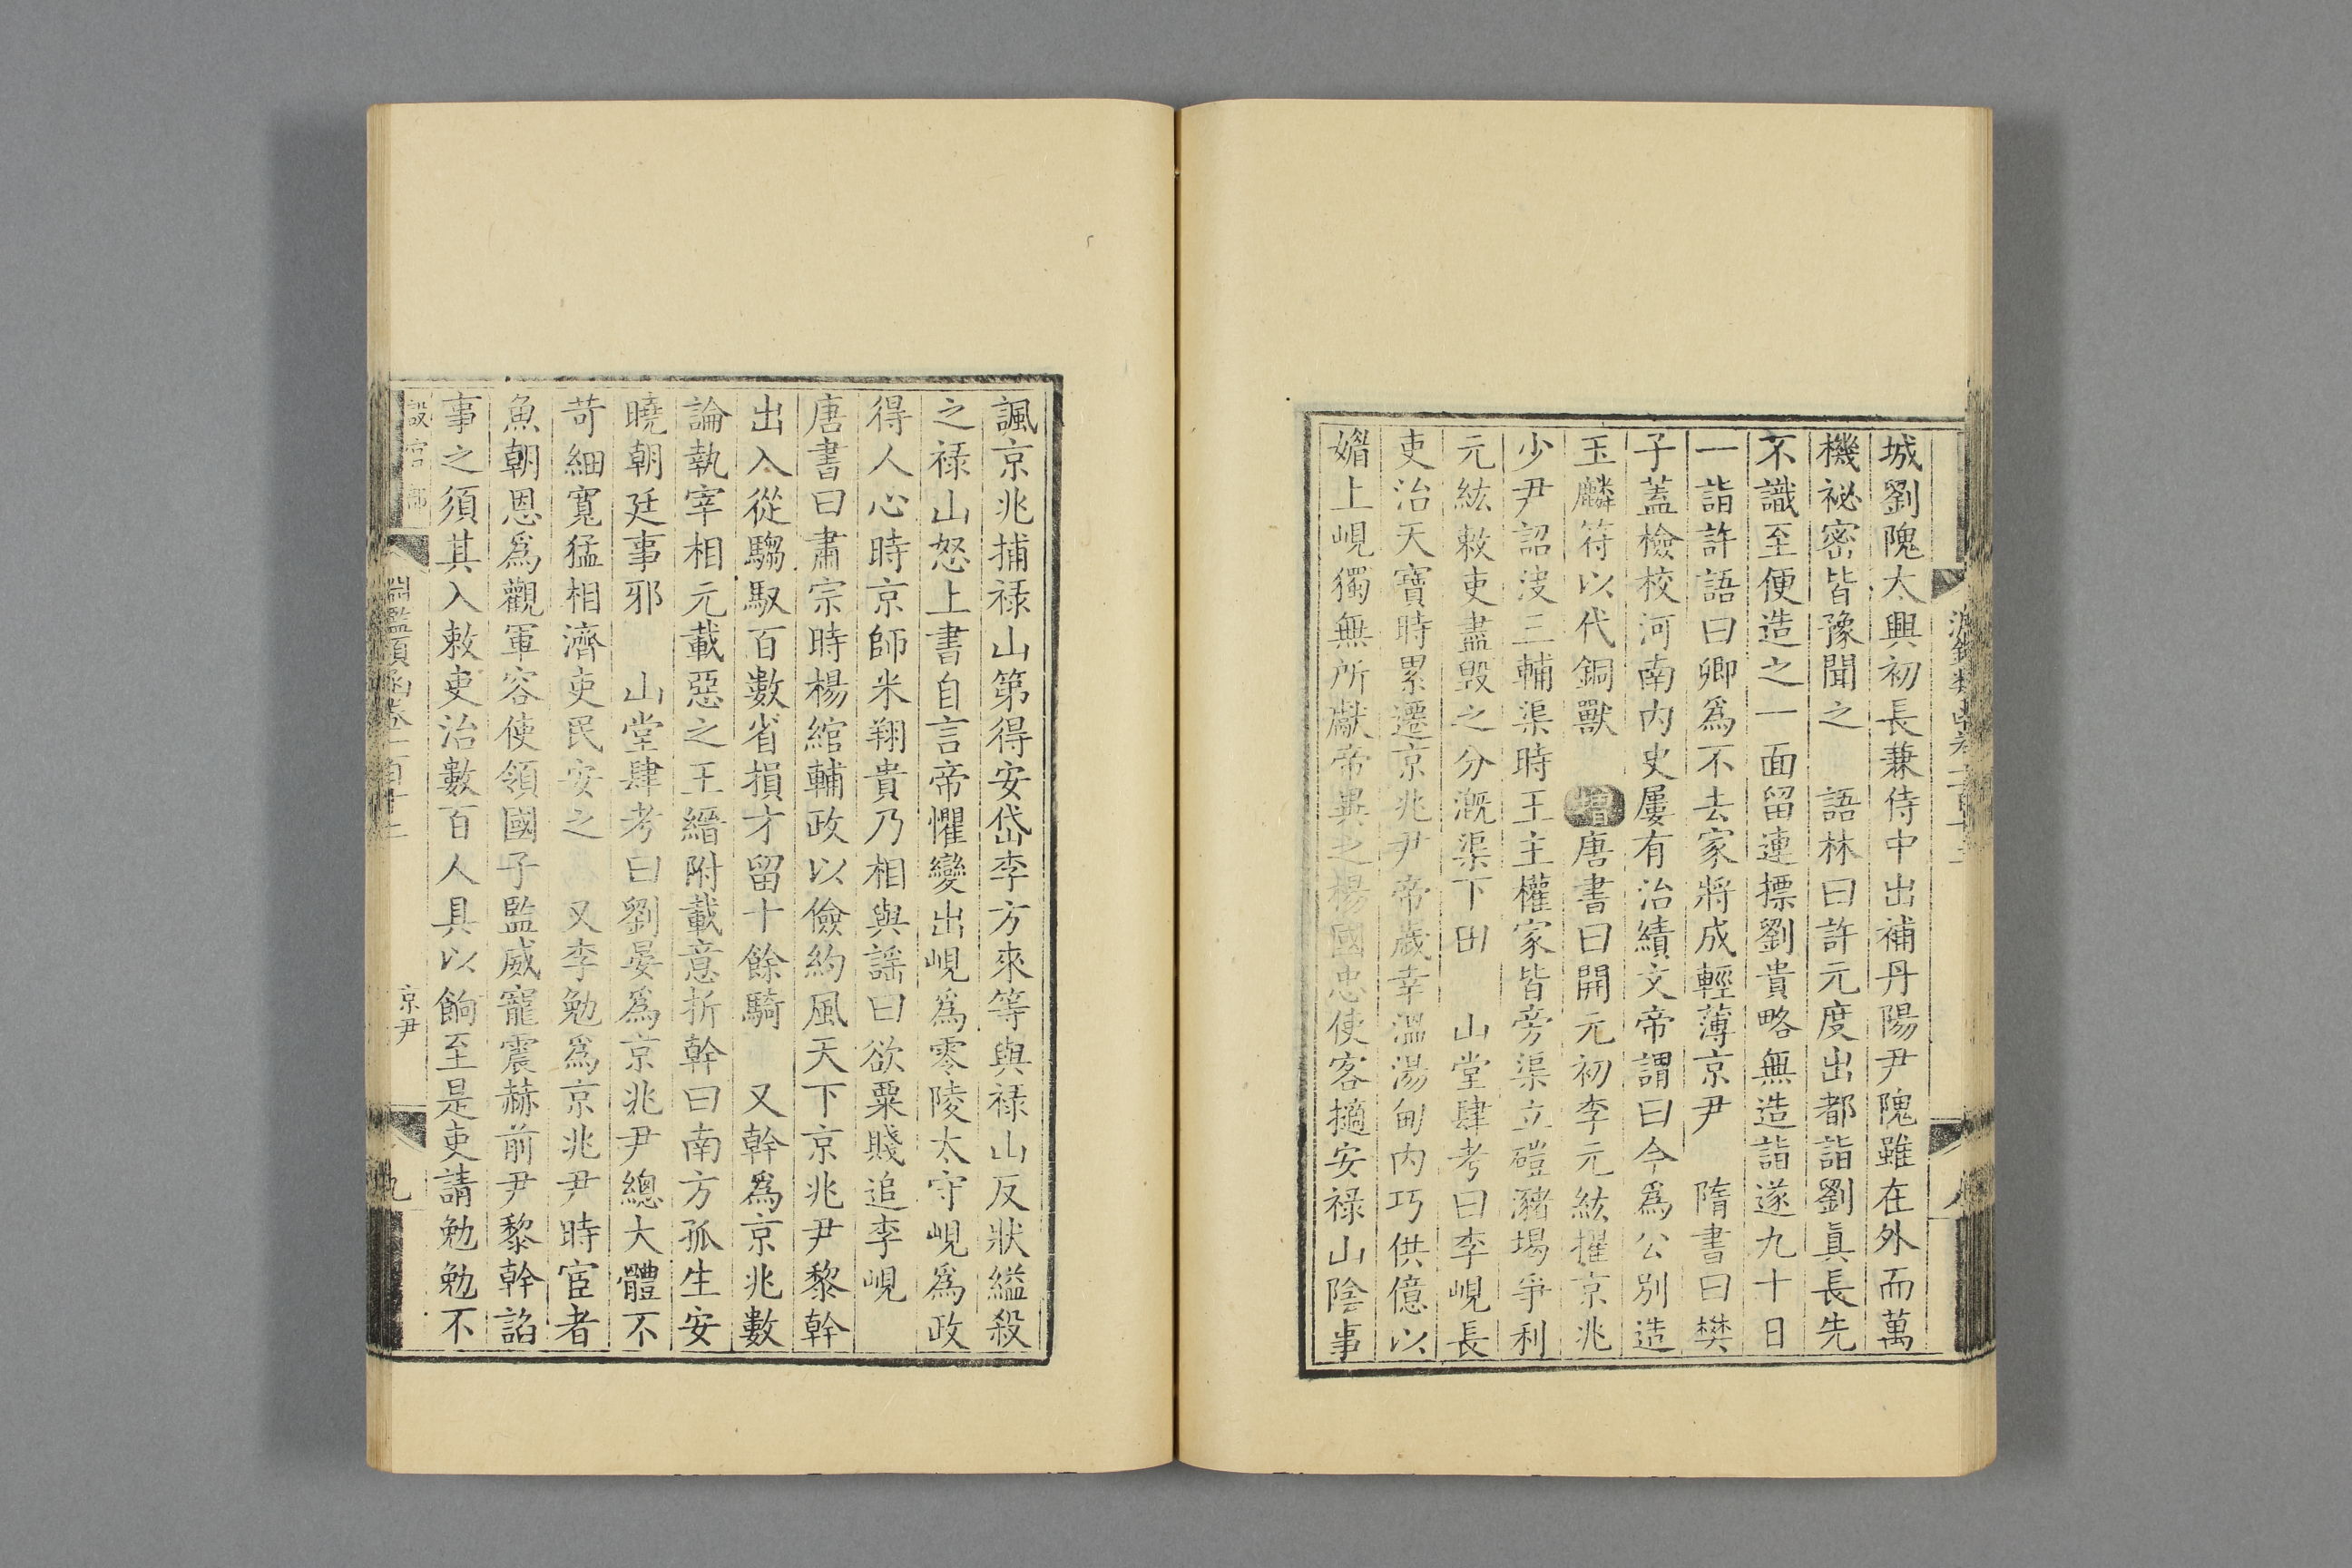 城劉隗太興初長兼侍中出補丹陽尹隗雖在外而萬
機祕密皆豫聞之　語林曰許元度出都詣劉眞長先
不識至便造之一面留連摽劉貴略無造詣遂九十日
一詣許語曰卿爲不去家將成輕薄京尹　隋書曰樊
子蓋檢校河南內史屢有治績文帝謂曰今爲公別造
玉麟符以代銅獸　增唐書曰開元初李元紘擢京兆
少尹詔浚三輔渠時王主權家皆旁渠立磑瀦堨爭利
元紘敕吏盡毀之分漑渠下田　山堂肆考曰李峴長
吏治天寶時累遷京兆尹帝歲幸溫湯甸內巧供億以
媚上峴獨無所獻帝異之楊國忠使客擿安祿山陰事
諷京兆捕祿山第得安岱李方來等與祿山反狀縊殺
之祿山怒上書自言帝懼變出峴爲零陵太守峴爲政
得人心時京師米翔貴乃相與謠曰欲粟賤追李峴
唐書曰肅宗時楊綰輔政以儉約風天下京兆尹黎幹
出入從騶馭百數省損才留十餘騎　又幹爲京兆數
論執宰相元載惡之王縉附載意折幹曰南方孤生安
曉朝廷事邪　山堂肆考曰劉晏爲京兆尹總大體不
苛細寬猛相濟吏民安之　又李勉爲京兆尹時宦者
魚朝恩爲觀軍容使領國子監威寵震赫前尹黎幹諂
事之須其入敕吏治數百人具以餉至是吏請勉勉不
設官部　淵鑑類函卷一百十二　京尹　九